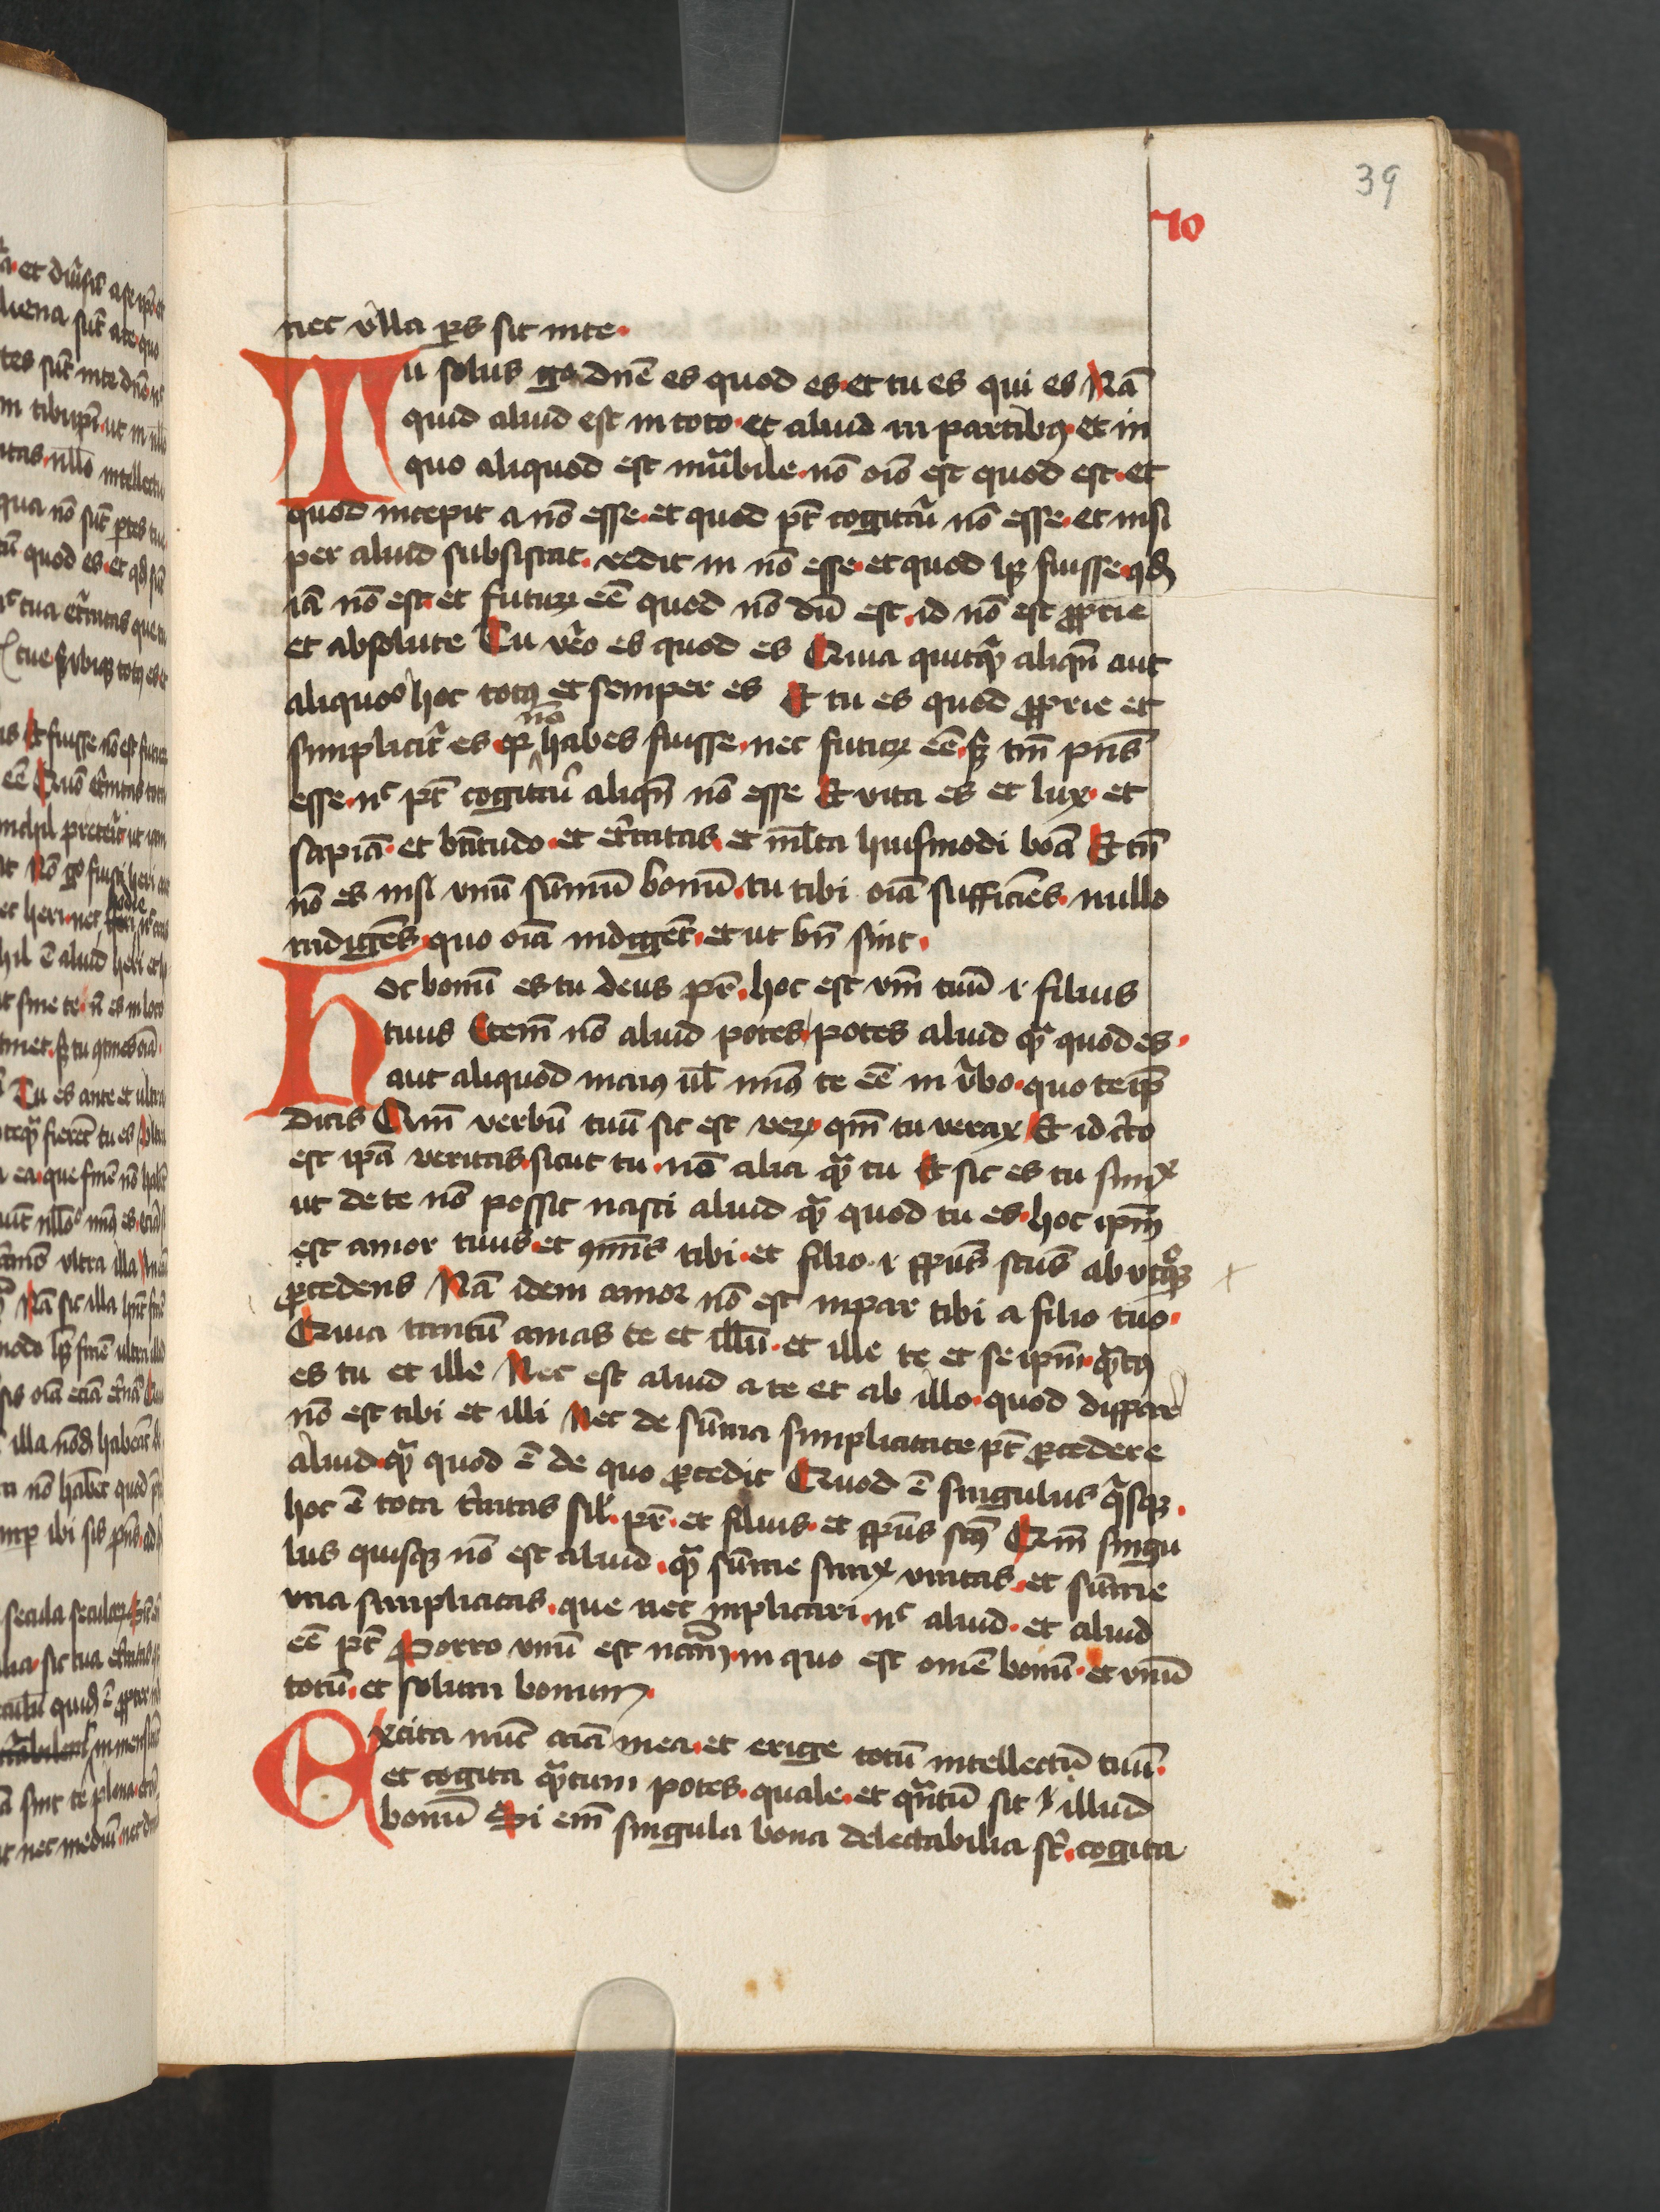 39
70
nec ulla ps sit in te.
Tu solus go dnē es quod es. et tu es qui es Nā
quid aliud est in toto. et aliud in partibꝰ. et in
quo aliquod est mutabile. nō oīo est quod est. et
quod incepit a nō esse. et quod pt̄ cogitari nō esse. et nisi
per aliud subsistat. redit in nō esse. et quod hꝫ fuisse. qd̄
iā nō est. et futurꝝ eē quod nō dū est. id nō est ꝓprie
et absolute Tu vero es quod es Quia quitqͣ aliqn̄ aut
aliquo hoc totꝰ et semper es Et tu es quod ꝓprie et
simplicit̉ es. qꝛ nō habes fuisse. nec futurꝝ eē. sꝫ tm̄ pn̄s
esse. nͨ pt̄ cogitari aliqn̄ nō esse Et vita es et lux. et
sapiā. et btitudo. et et̉nitas. et ml̄ta huiusmodi boā Et tn̄
nō es nisi vnū sūmū bonū. tu tibi oīa sufficiēs. nullo
indigēs. quo oīa indigēt. et ut bn̄ sint.
Hoc bonū es tu deus pr̄. hoc est vm̄ tuū .i. filius
tuus Etem̄ nō aliud potes potes aliud qͣ quod es.
aut aliquod maiꝰ ul̄ minꝰ te eē in v̉bo. quo teip̄
dicis Qm̄ verbū tuū sic est verꝝ. qm̄ tu verax Et idc̉co
est ip̄a veritas. sicut tu. nō alia qͣ tu Et sic es tu simpˣ
ut de te nō possit nasci aliud qͣ quod tu es. hoc ip̄m
est amor tuus. et ꝯmn̄s tibi. et filio .i. sp̄us scūs ab utqꝫ
ꝓcedens Nā idem amor nō est inpar tibi a filio tuo.
Quia tantū amas te et illū. et ille te et se ip̄m. qͣtꝰ
es tu et ille Nec est aliud a te et ab illo. quod dispar
nō est tibi et illi Nec de sūma simplicitate pt̄ ꝓcedere
aliud. qͣ quod ē de quo ꝓcedit Quod ē singulus qͥsqꝫ.
hoc ē tota t̉nitas sil̉. pr̄. et filius. et sp̄us scꝰ Qm̄ singu
lus quisqꝫ nō est aliud. qͣ sūme simpˣ vnitas. et sūme
vna simplicitas. que nec mplicari. nͨ aliud. et aliud
eē pt̄ Porro vnū est ncc̄m. in quo est omē bonū. et vnū
totū. et solum bonum.
Excita nūc aīa mea. et erige totū intellectū tuū.
et cogita qͣtum potes. quale. et qͣntū sit illud
bonū Si em̄ singula bona delectabilia st̄. cogita